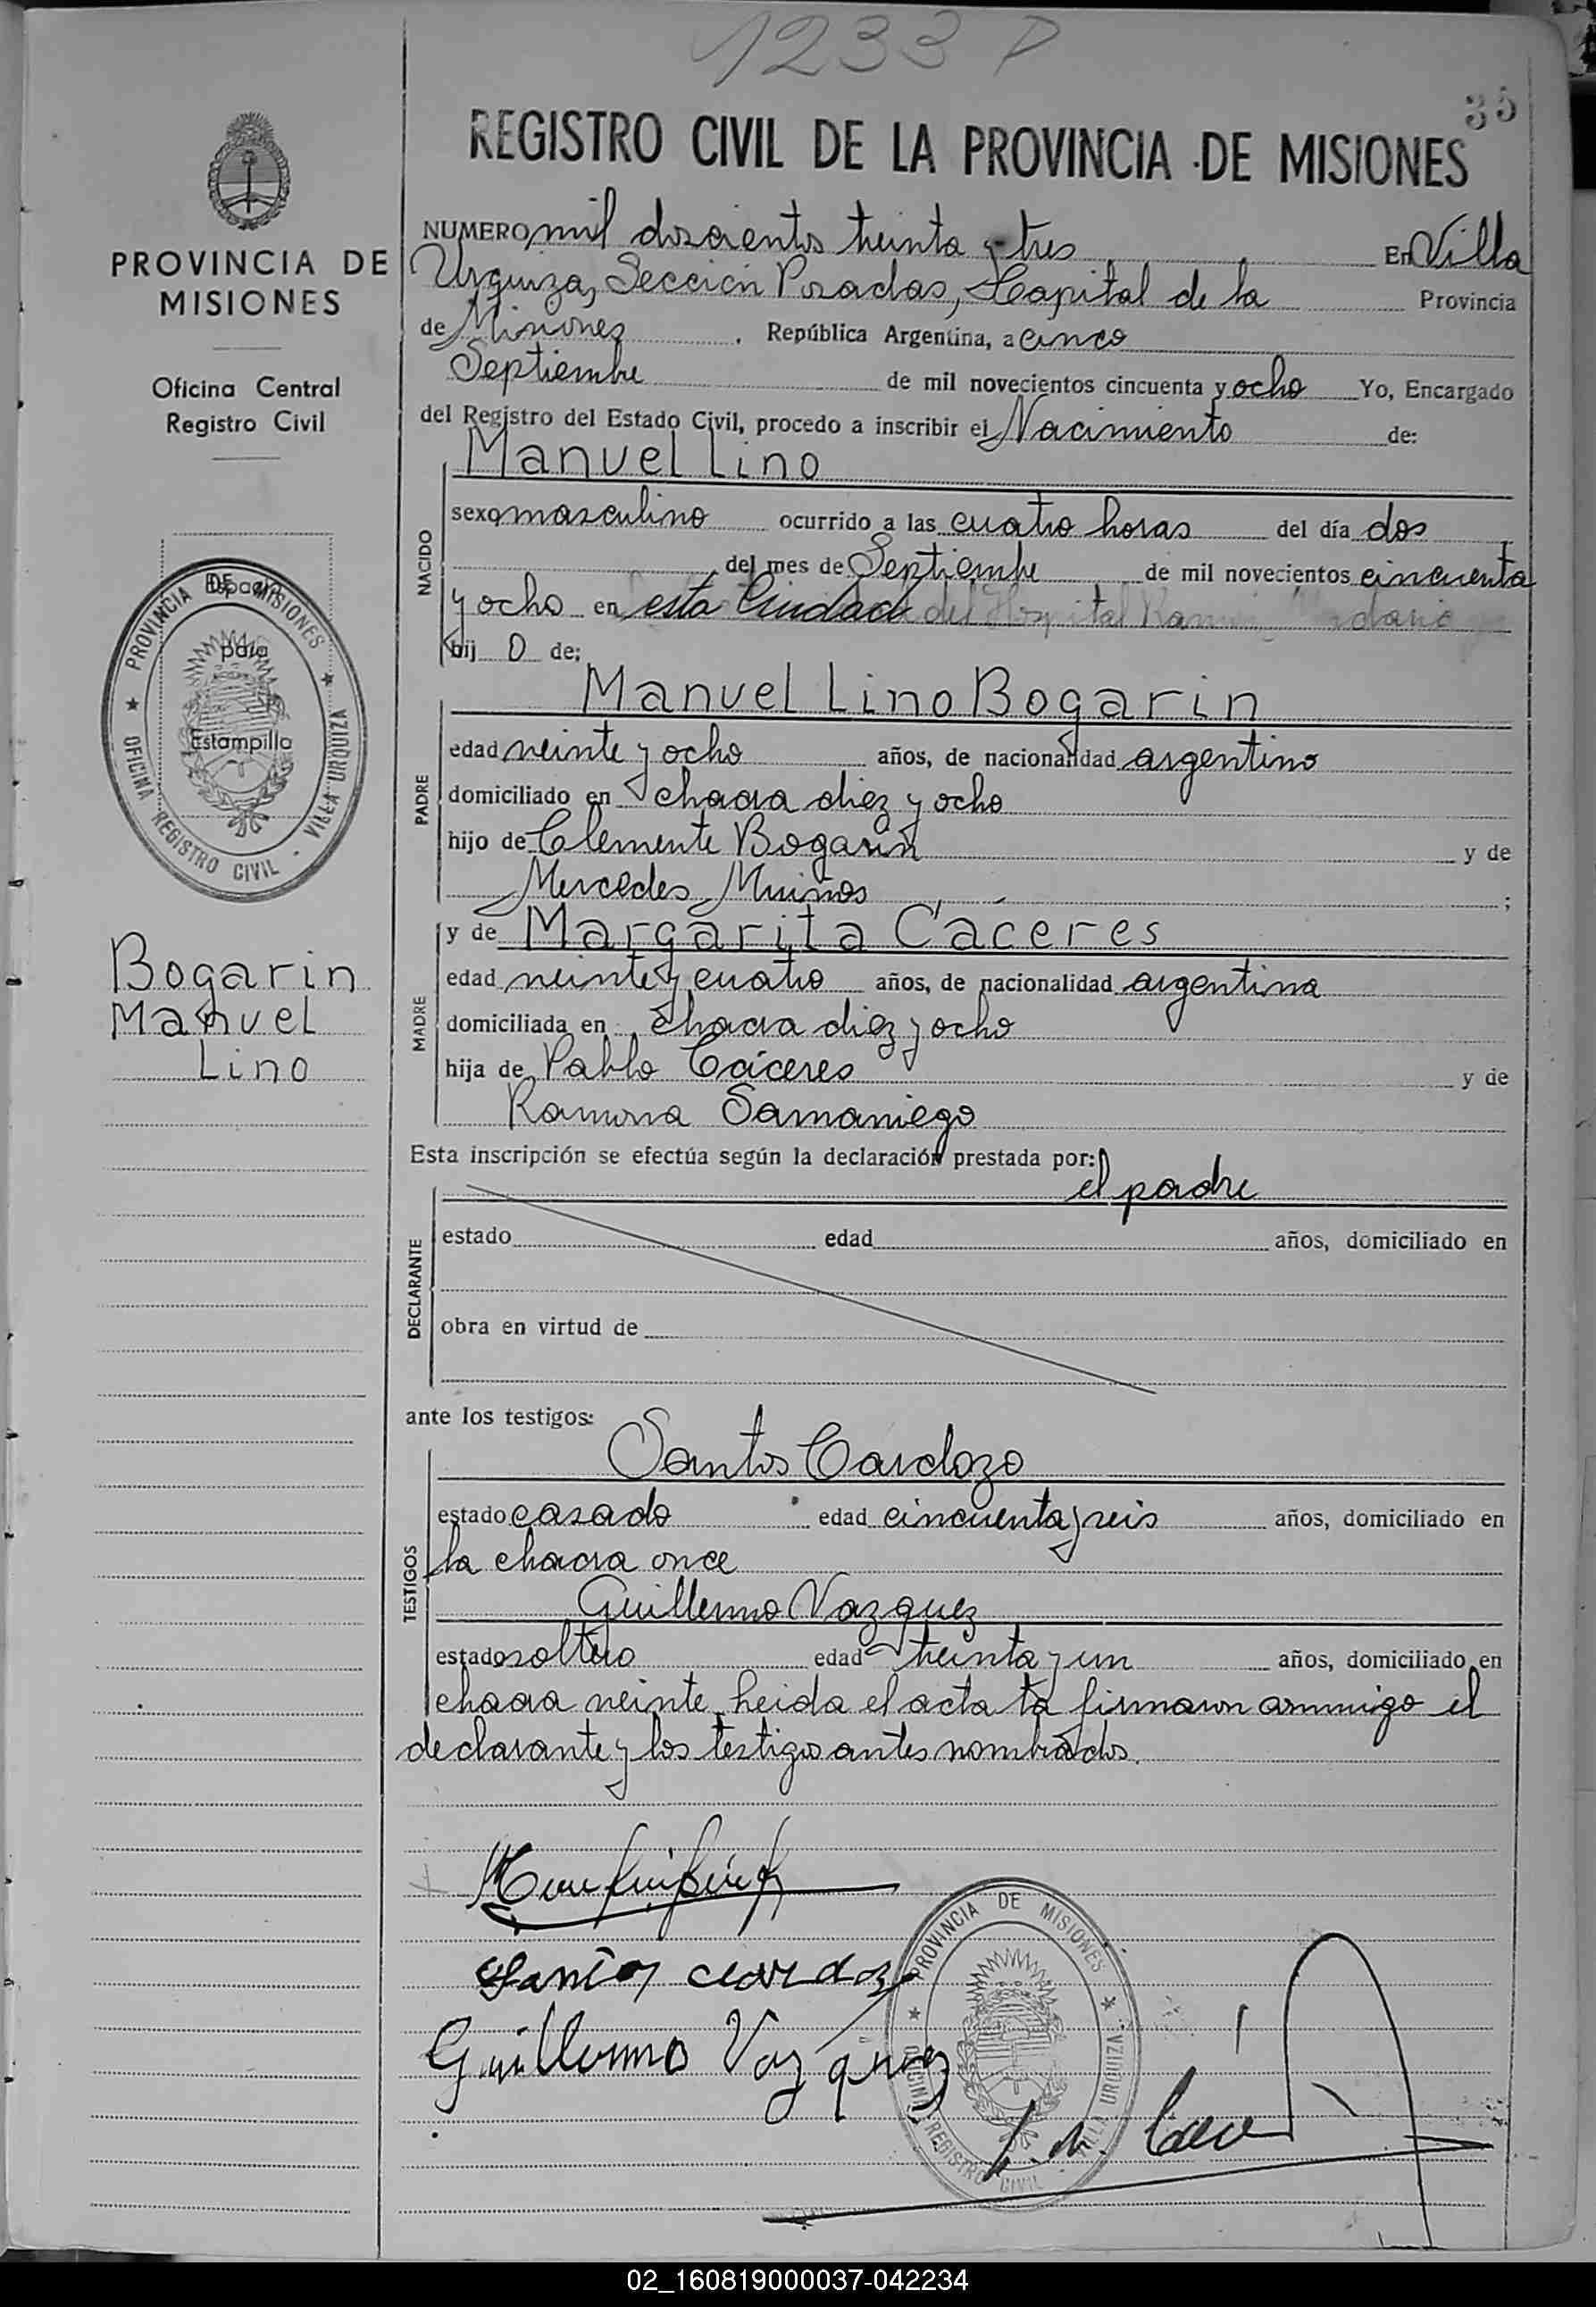 1233 P
35
REGISTRO CIVIL DE LA PROVINCIA DE MISIONES
PROVINCIA DE
MISIONES
Oficina Central
Registro Civil
NUMERO mil doscientos treinta y tres En Villa
Urquiza, Sección Posadas, Capital de la Provincia
de Misiones, República Argentina, a cinco
Septiembre de mil novecientos cincuenta y ocho Yo, Encargado
del Registro del Estado Civil, procedo a inscribir el Nacimiento de:
NACIDO
Manuel Lino
sexo masculino ocurrido a las cuatro horas del día dos
del mes de Septiembre de mil novecientos cincuenta
y ocho en esta Ciudad del Hospital Ramón
hij o de:
PADRE
Manuel Lino Bogarin
edad veinte y ocho años, de nacionalidad argentino
domiciliado en chacra diez y ocho
hijo de Clemente Bogarin y de
Mercedes ;
MADRE
y de Margarita Cáceres
edad veinte y cuatro años, de nacionalidad argentina
domiciliada en chacra diez y ocho
hija de Pablo Cáceres y de
Ramona Samaniego
Esta inscripción se efectúa según la declaración prestada por:
DECLARANTE
el padre
estado edad años, domiciliado en
obra en virtud de
ante los testigos:
TESTIGOS
Santos Cardozo
estado casado edad cincuenta y seis años, domiciliado en
la chacra once
Guillermo Vazquez
estado soltero edad treinta y un años, domiciliado en
chacra veinte. Leida el acta la firmaron conmigo el
declarante y los testigos antes nombrados.
PROVINCIA DE MISIONES
OFICINA REGISTRO CIVIL - VILLA URQUIZA
Espacio
para
Estampilla
Bogarin
Manuel
Lino
Santos Cardozo
Guillermo Vazquez
PROVINCIA DE MISIONES
OFICINA REGISTRO CIVIL - VILLA URQUIZA
02_160819000037-042234